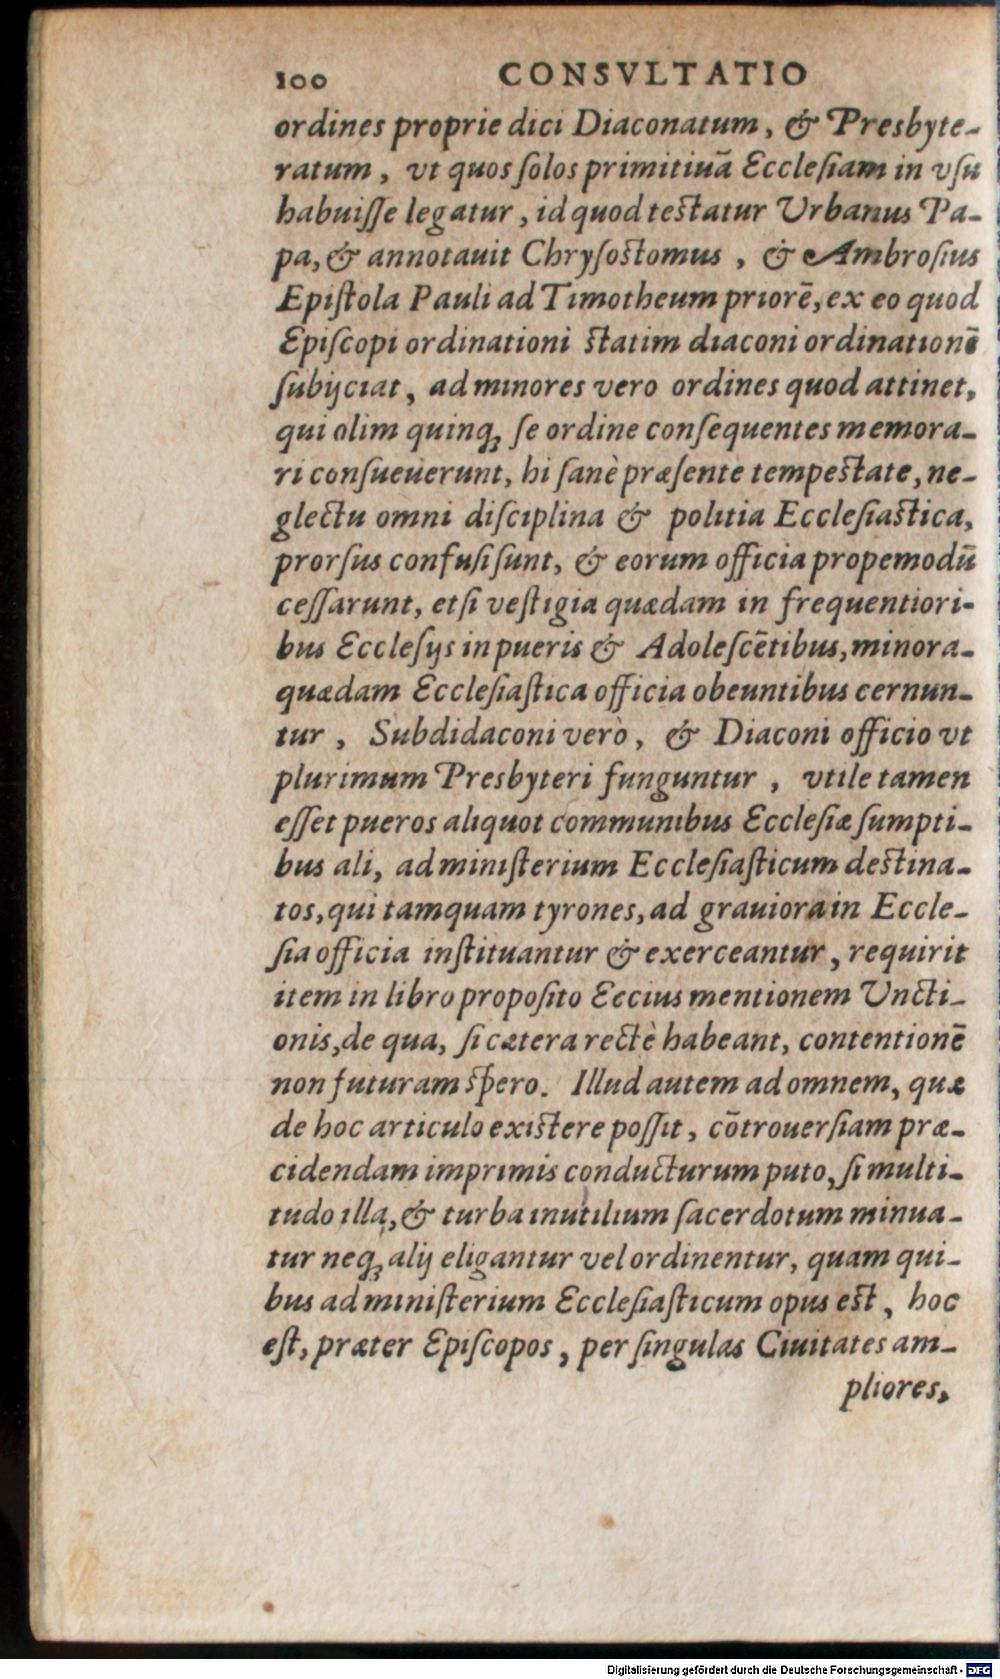 100 CONSVLTATIO
ordines proprie dici Diaconatum, & Presbyte-
ratum, vt quos ſolos primitiuā Eccleſiam in vſu
habuiſſe legatur, id quod teſtatur Vrbanus Pa-
pa, & annotauit Chryſoſtomus, & Ambroſius
Epiſtola Pauli ad Timotheum priorē, ex eo quod
Epiſcopi ordinationi ſtatim diaconi ordinationē
ſubijciat, ad minores vero ordines quod attinet,
qui olim quinq; ſe ordine conſequentes memora-
ri conſueuerunt, hi ſanè præſente tempeſtate, ne-
glectu omni diſciplina & politia Eccleſiaſtica,
prorſus confuſi ſunt, & eorum officia propemodū
ceſſarunt, etſi veſtigia quædam in frequentiori-
bus Eccleſijs in pueris & Adoleſcētibus, minora-
quædam Eccleſiaſtica officia obeuntibus cernun-
tur, Subdidaconi verò, & Diaconi officio vt
plurimum Presbyteri funguntur, vtile tamen
eſſet pueros aliquot communibus Eccleſiæ ſumpti-
bus ali, ad miniſterium Eccleſiaſticum deſtina-
tos, qui tamquam tyrones, ad grauiora in Eccle-
ſia officia inſtituantur & exerceantur, requirit
item in libro propoſito Eccius mentionem Vncti-
onis, de qua, ſi cætera rectè habeant, contentionē
non futuram ſpero. Illud autem ad omnem, quæ
de hoc articulo exiſtere poſſit, cōtrouerſiam præ-
cidendam imprimis conducturum puto, ſi multi-
tudo illa, & turba inutilium ſacerdotum minua-
tur neq; alij eligantur vel ordinentur, quam qui-
bus ad miniſterium Eccleſiaſticum opus eſt, hoc
eſt, præter Epiſcopos, per ſingulas Ciuitates am-
pliores,
Digitalisierung gefördert durch die Deutsche Forschungsgemeinschaft - DFG